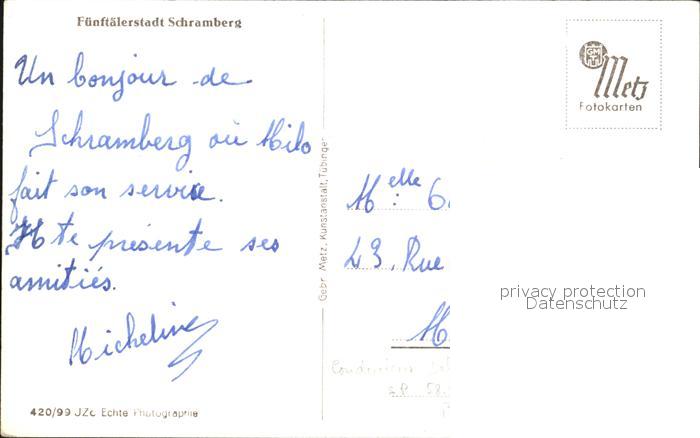 Fünftälerstadt Schramberg
Un bonjour de
Schramberg où Milo
fait son service.
Il te présente ses
amitiés.
Micheline
420/99 JZc Echte Photographie
Gebr. Metz, Kunstanstalt, Tübingen
GMT
Metz
Fotokarten
Melle G
43, Rue
M
privacy protection
Datenschutz